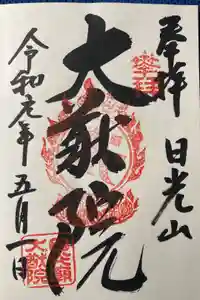 奉拝
日光山
大猷院
令和元年五月一日